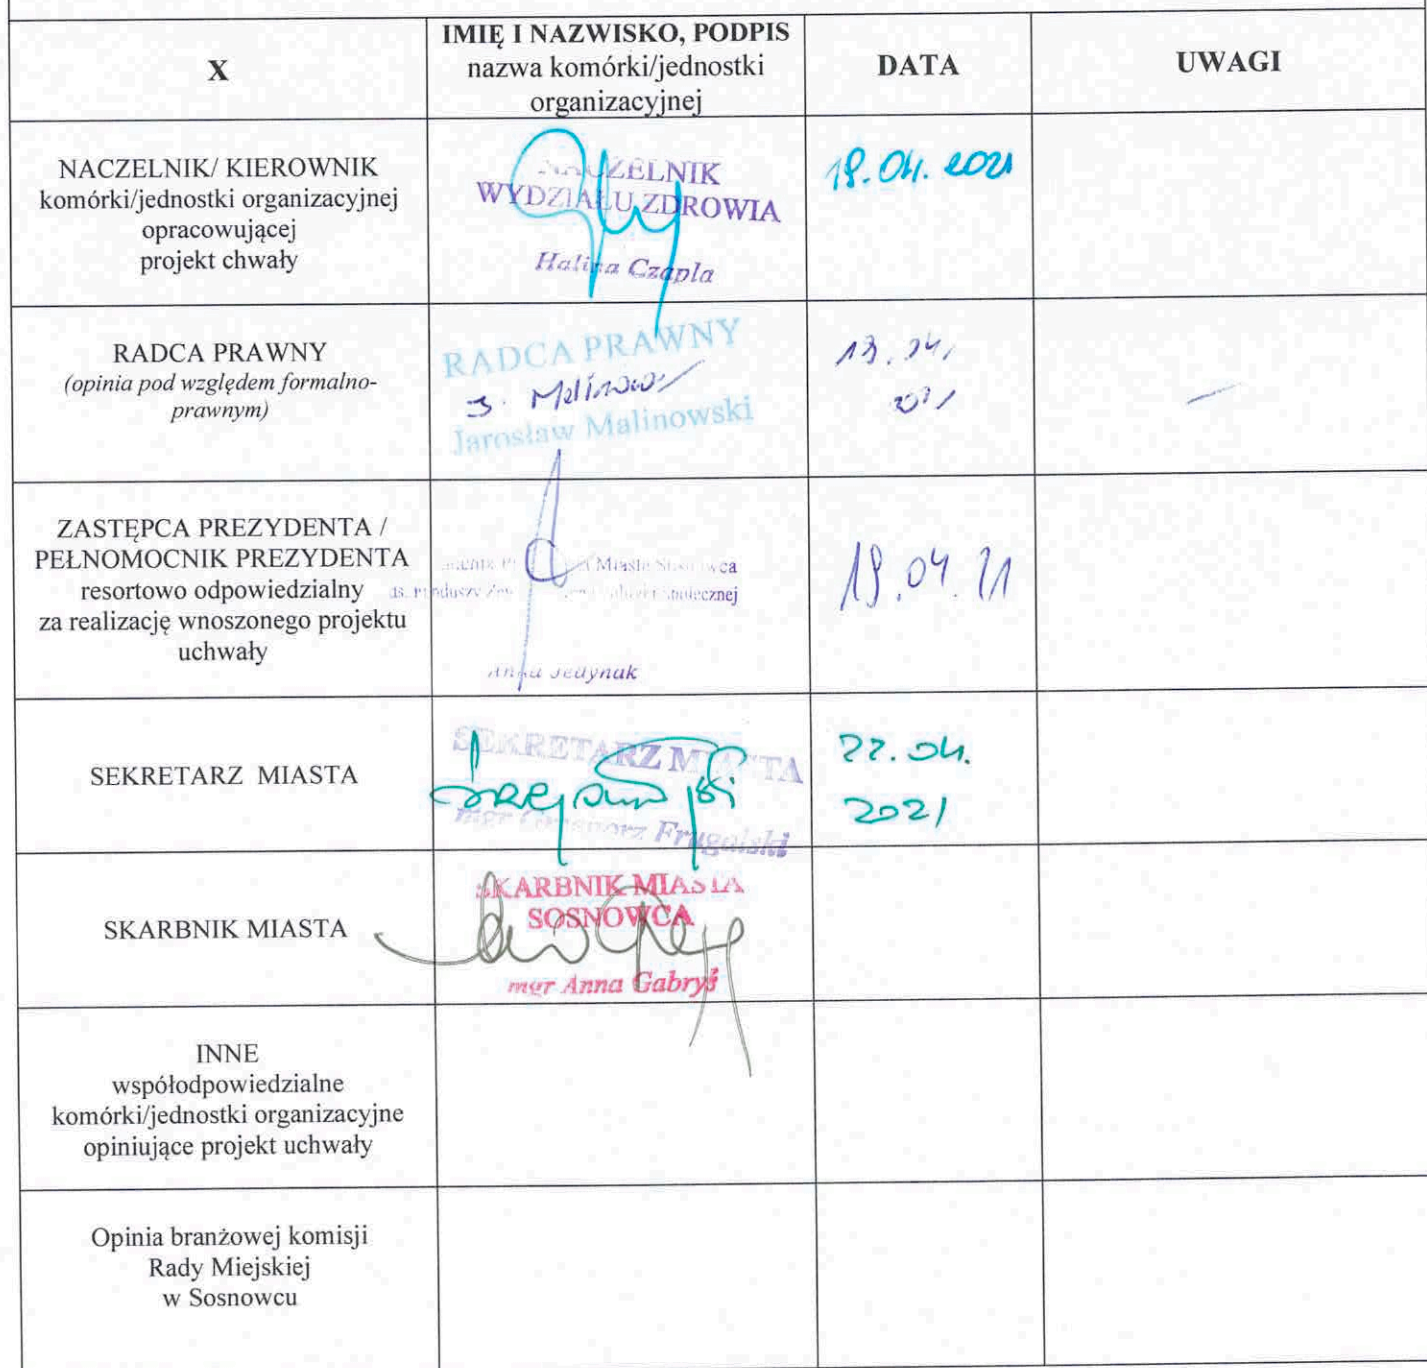 X
IMIĘ I NAZWISKO, PODPIS
nazwa komórki/jednostki
organizacyjnej
DATA
UWAGI
NACZELNIK/ KIEROWNIK
komórki/jednostki organizacyjnej
opracowującej
projekt chwały
NACZELNIK
WYDZIAŁU ZDROWIA
Halina Czapla
19.04.2021
RADCA PRAWNY
(opinia pod względem formalno-
prawnym)
RADCA PRAWNY
J. Malinowski
Jarosław Malinowski
ZASTĘPCA PREZYDENTA /
PEŁNOMOCNIK PREZYDENTA
resortowo odpowiedzialny
za realizację wnoszonego projektu
uchwały
Miasta Sosnowca
Społecznej
Anna Jedynak
19.04.21
SEKRETARZ MIASTA
SEKRETARZ MIASTA
mgr Grzegorz Frugalski
22.04.
2021
SKARBNIK MIASTA
SKARBNIK MIASTA
SOSNOWCA
mgr Anna Gabryś
INNE
współodpowiedzialne
komórki/jednostki organizacyjne
opiniujące projekt uchwały
Opinia branżowej komisji
Rady Miejskiej
w Sosnowcu